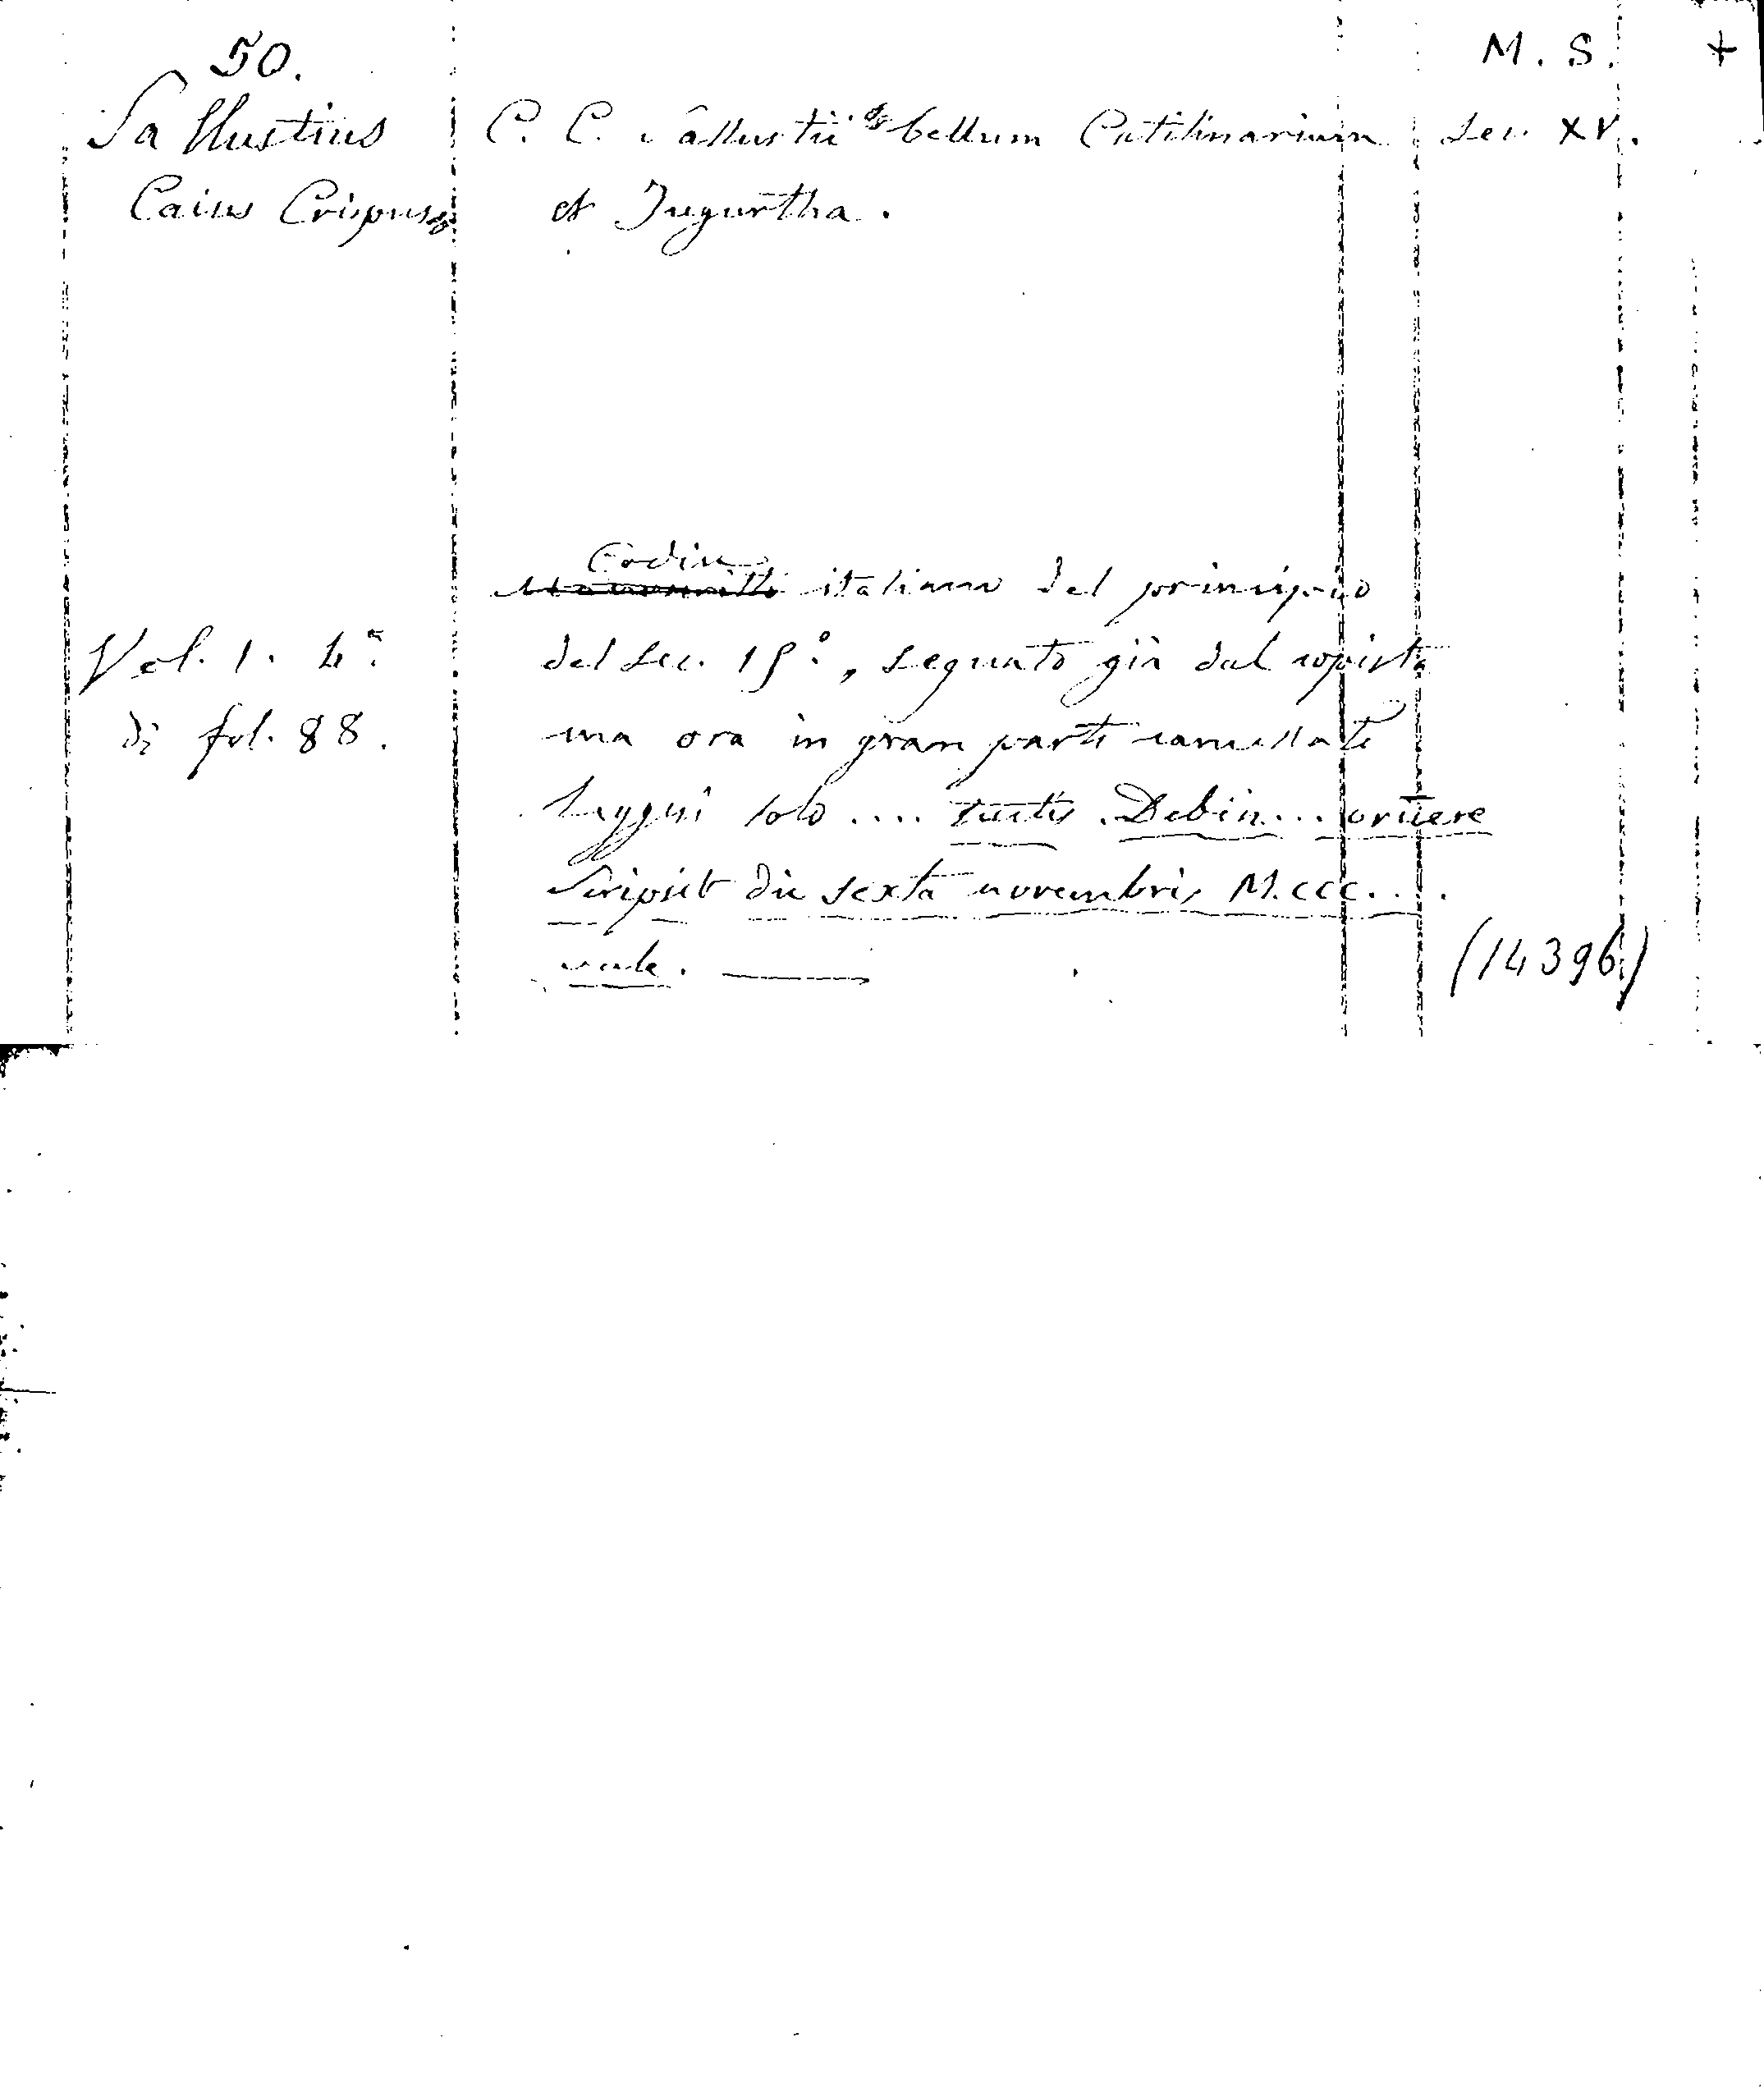 50. M. S. +
Sallustius C. C. Sallustii bellum Catilinarium Sec. XV.
Caius Crispus et Jugurtha.
Codice
Manoscritto italiano del principio
Vol. 1. 4°. del Sec. 15°., segnato già dal copista
di fol. 88. ma ora in gran parte cancellato
leggesi solo .... Debin...
Scripsit die sexta novembris M.ccc...
(14396)